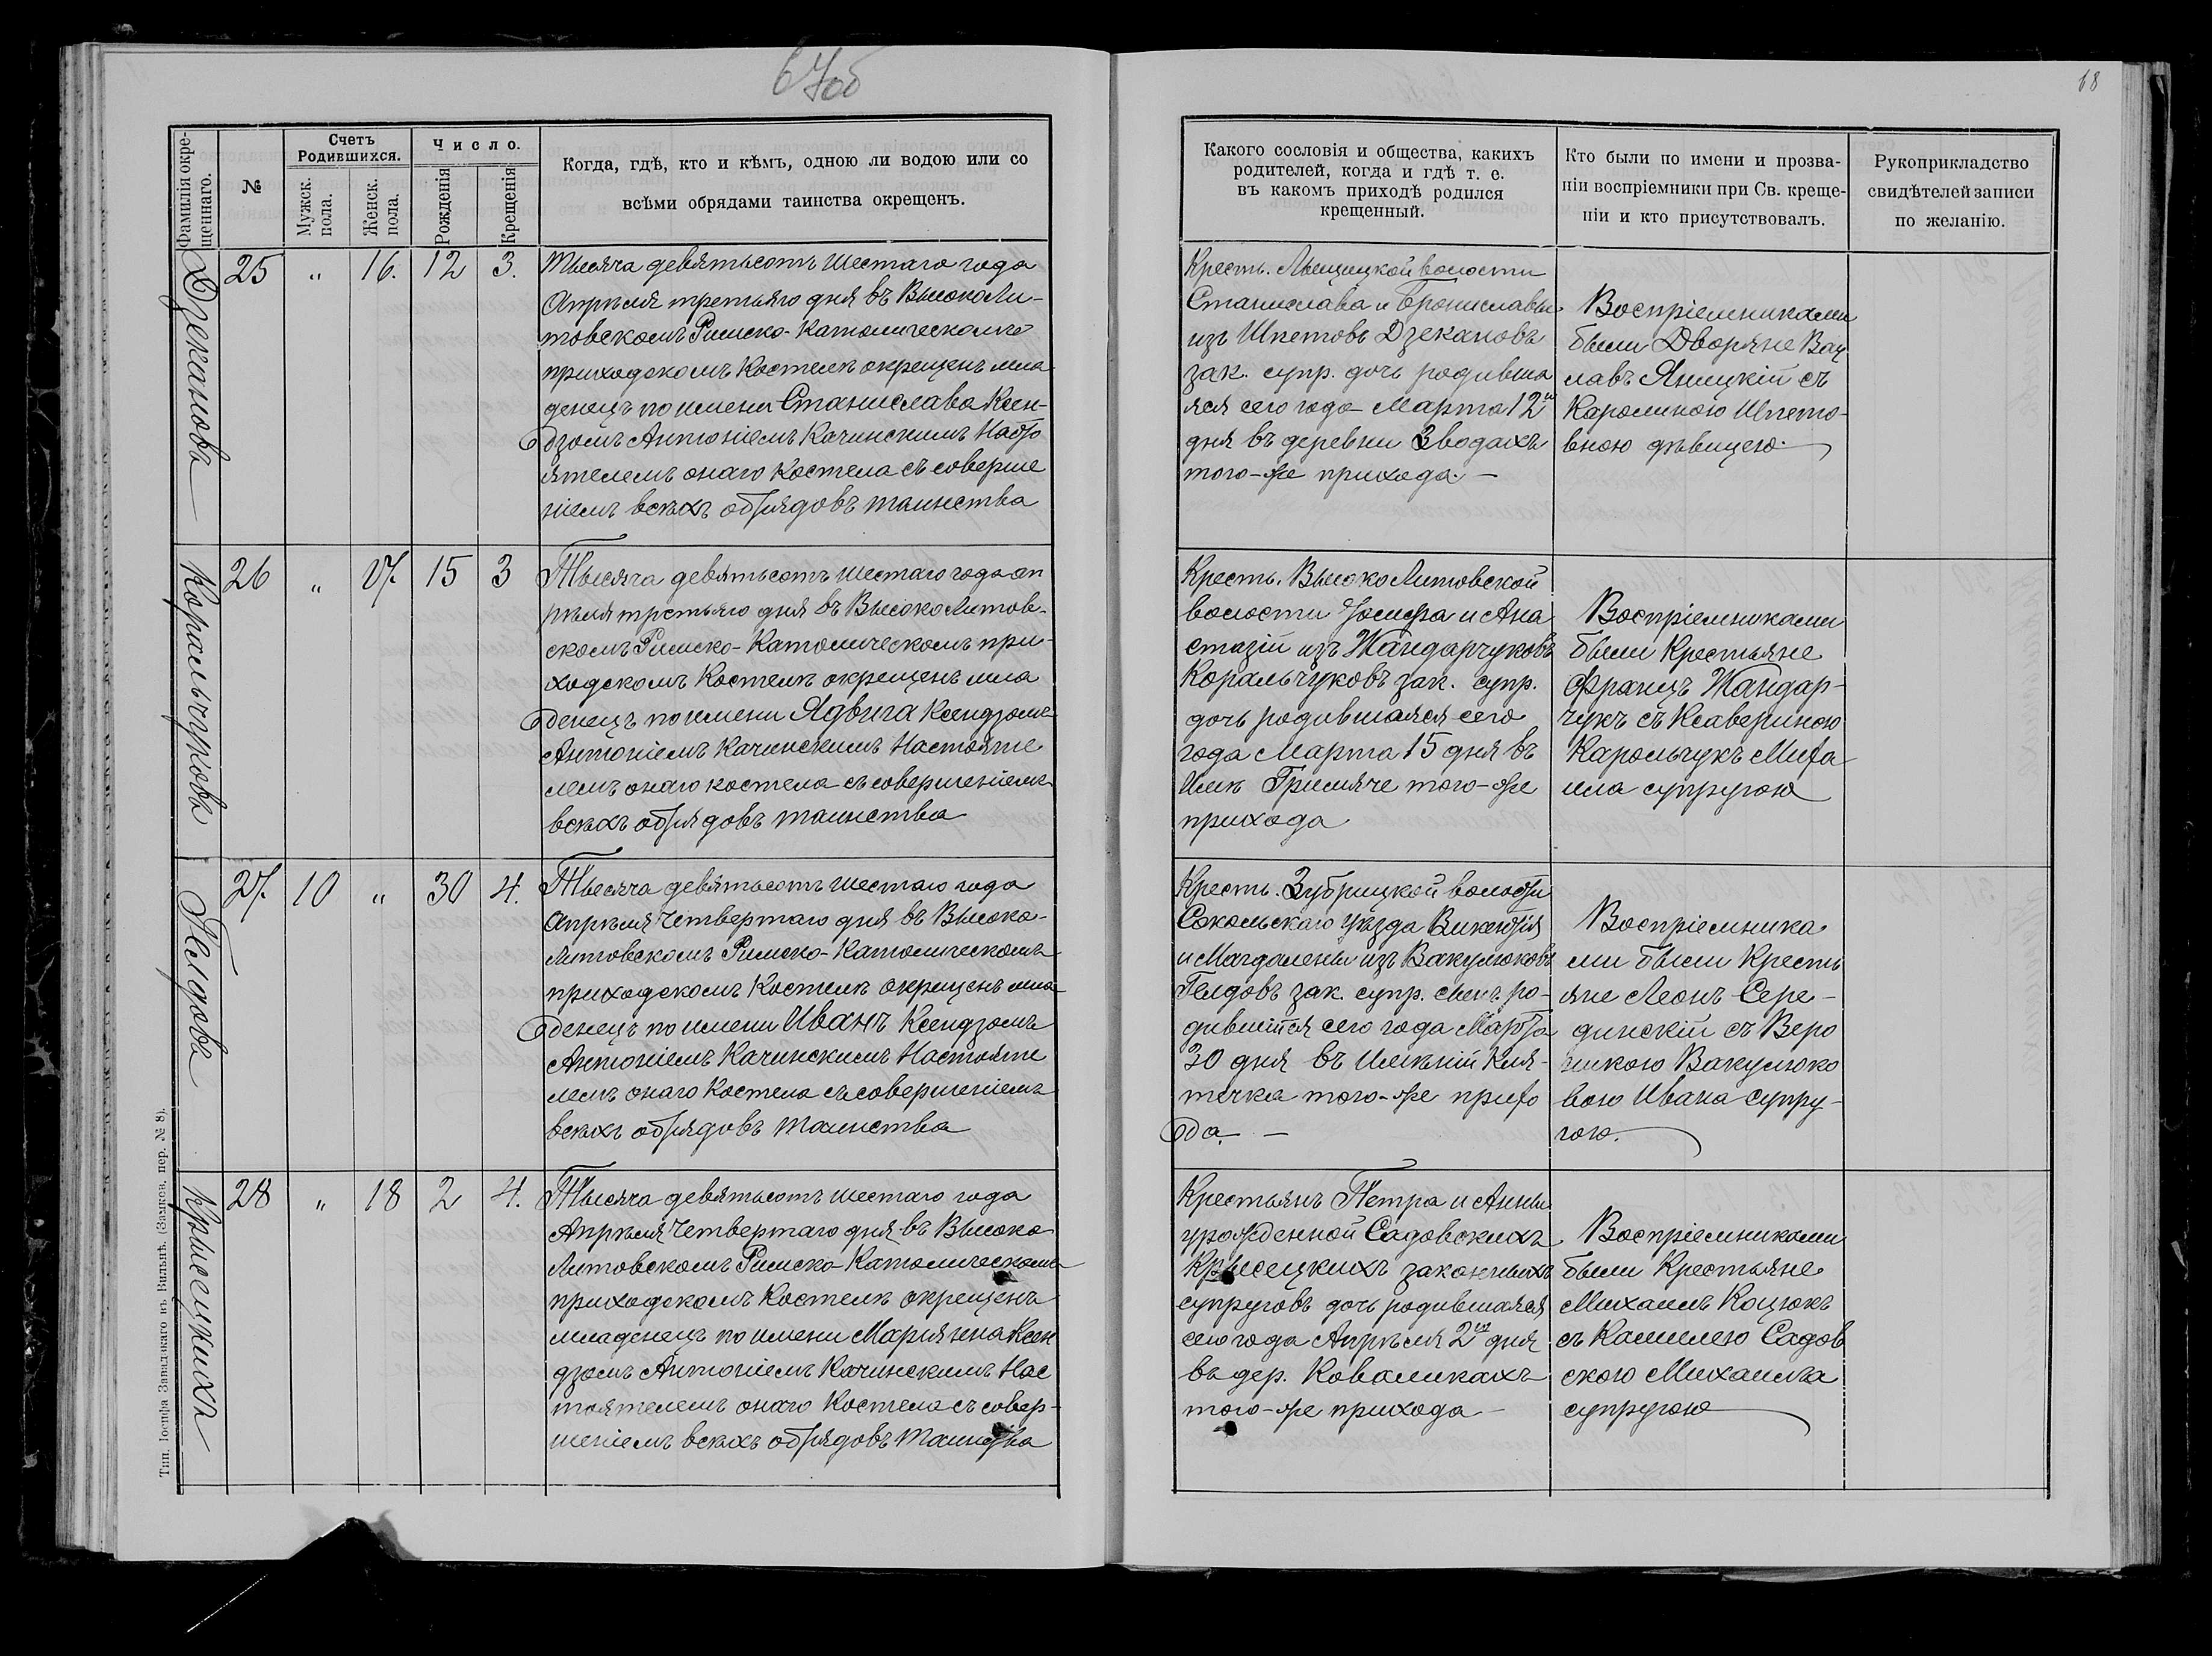 67об
68
Фамилія окре-
щеннаго.
№
Счетъ
Родившихся.
Мужск.
пола.
Женск.
пола.
Число.
Рожденія
Крещенія
Когда, гдѣ, кто и кѣмъ, одною ли водою или со
всѣми обрядами таинства окрещенъ.
Какого сословія и общества, какихъ
родителей, когда и гдѣ т. е.
въ какомъ приходѣ родился
крещенный.
Кто были по имени и прозва-
ніи воспріемники при Св. креще-
ніи и кто присутствовалъ.
Рукоприкладство
свидѣтелей записи
по желанію.
Дзеканова
25 „ 16. 12 3.
Тысяча девятьсотъ шестаго года
Апрѣля третьяго дня въ ВысокоЛи-
товскомъ Римско-Католическомъ
приходскомъ Костелѣ окрещенъ мла
денецъ по имени Станислава Ксен-
дзомъ Антоніемъ Качинскимъ Насто
ятелемъ онаго Костела съ соверше
ніемъ всѣхъ обрядовъ таинства
Кресть. Лыщицкой волости
Станислава и Брониславы
изъ Шпетовъ Дзекановъ
зак. супр. дочь родивша
яся сего года Марта 12го
дня въ деревни Зводахъ
того-же прихода.—
Воспріемниками
были Дворяне Вац
лавъ Яницкій съ
Каролиною Шпето-
вною дѣвицею.
Коральчукова
26 „ 17. 15 3
Тысяча девятьсотъ шестаго года ап
рѣля третьяго дня въ ВысокоЛитов-
скомъ Римско-Католическомъ при-
ходскомъ Костелѣ окрещенъ мла
денецъ по имени Ядвига Ксендзомъ
Антоніемъ Качинскимъ Настояте
лемъ онаго костела съ совершеніемъ
всѣхъ обрядовъ таинства
Кресть. ВысокоЛитовской
волости Іосифа и Ана
стазій изъ Жандарчуковъ
Коральчуковъ зак. супр.
дочь родившаяся сего
года Марта 15 дня въ
Имѣ Гримяче того-же
прихода
Воспріемниками
были Крестьяне
Францъ Жандар-
чукъ съ Ксавериною
Карольчукъ Миха
ила супругою
Гелдовъ
27. 10 „ 30 4.
Тысяча девятьсотъ шестаго года
Апрѣля Четвертаго дня въ Высоко-
литовскомъ Римско-Католическомъ
приходскомъ Костелѣ окрещенъ мла
денецъ по имени Иванъ Ксендзомъ
Антоніемъ Качинскимъ Настояте
лемъ онаго Костела съ совершеніемъ
всѣхъ обрядовъ таинства
Кресть. Зубрицкой волости
Сокольскаго уѣзда Викентія
и Магдалены изъ Вакулюковъ
Гелдовъ зак. супр. сынъ ро-
дившійся сего года Марта
30 дня въ Имѣній Кля-
течка того-же прихо
да. —
Воспріемника
ми были Кресть
яне Леонъ Сере-
динскій съ Веро
никою Вакулюко
вою Ивана супру-
гою.
Крысецкихъ
28 „ 18 2 4.
Тысяча девятьсотъ шестаго года
Апрѣля Четвертаго дня въ Высоко
Литовскомъ Римско-Католическомъ
приходскомъ Костелѣ окрещенъ
младенецъ по имени Маріянна Ксен
дзомъ Антоніемъ Качинскимъ Нас
тоятелемъ онаго Костела съ совер-
шеніемъ всѣхъ обрядовъ таинства
Крестьянъ Петра и Анны
урожденной Садовскихъ
Крысецкихъ законныхъ
супруговъ дочь родившаяся
сего года Апрѣля 2го дня
въ дер. Коваликахъ
того-же прихода —
Воспріемниками
были Крестьяне
Михаилъ Коцюкъ
съ Камилею Садов
скою Михаила
супругою
Тип. Іосифа Завадзкаго въ Вильнѣ. (Замков. пер. № 8).